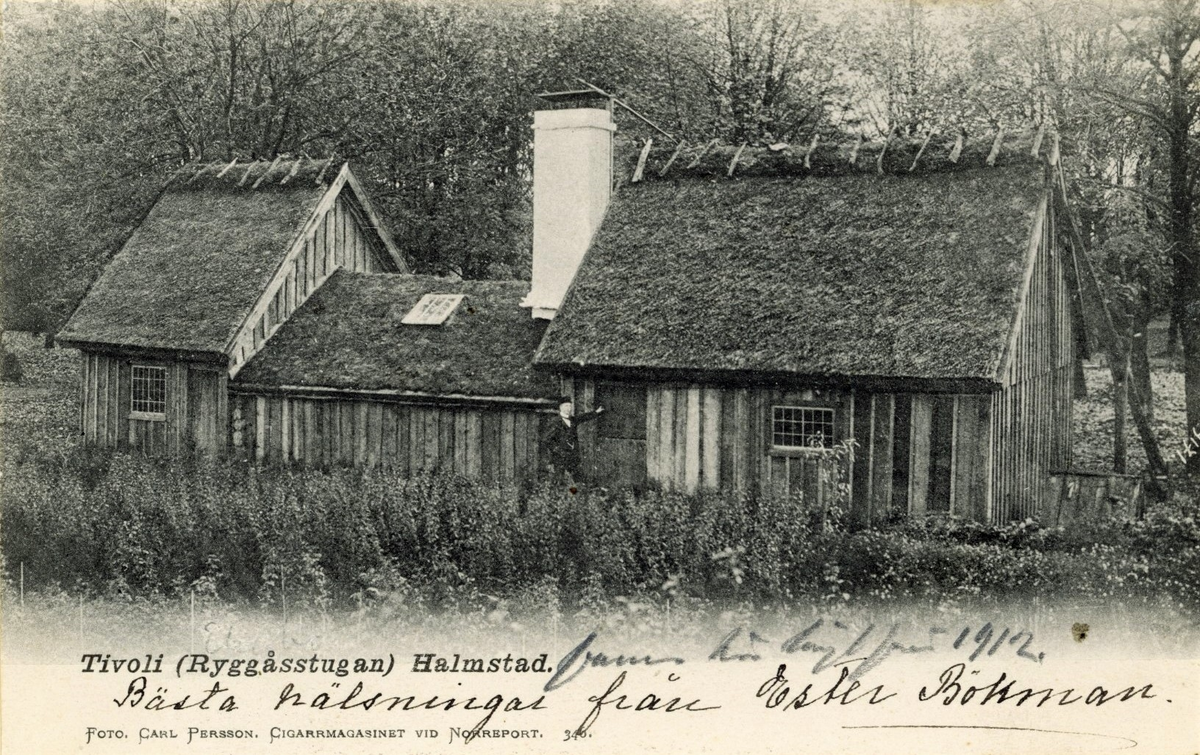 Tivoli (Ryggåsstugan) Halmstad.
1912.
Bästa hälsningar från Ester Bökman.
FOTO. CARL PERSSON. CIGARRMAGASINET VID NORREPORT. 346.